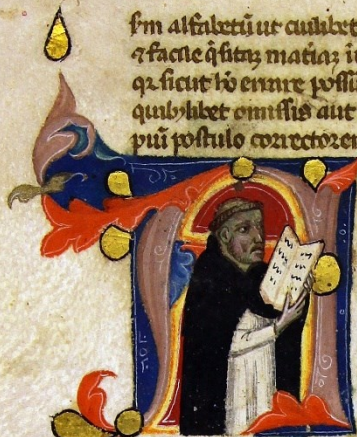 ẜm alfabetū ut cuilibet
⁊ facile q̄sitaꝝ matiaꝝ i
qꝛ sicut ħo errare possu
quibꝫlibet omissis aut
piū postulo correctorem